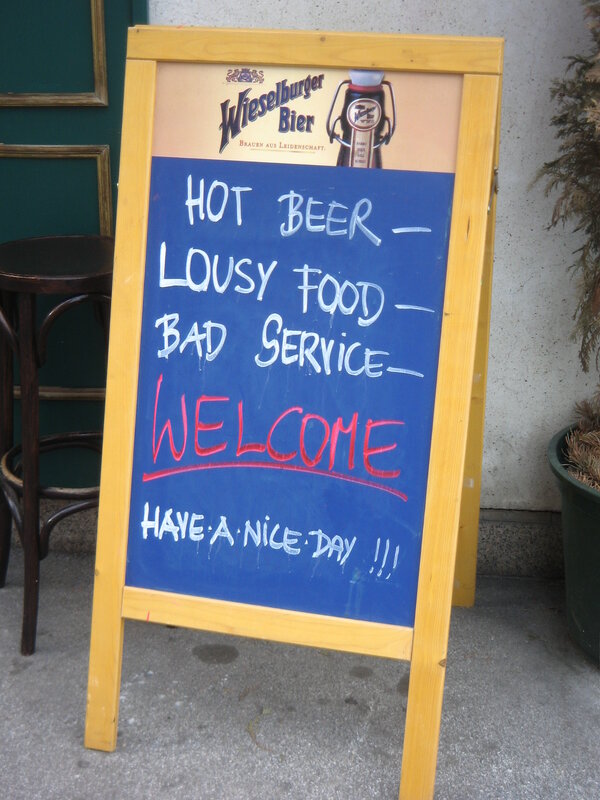 Wieselburger
Bier
Brauen aus Leidenschaft.
HOT BEER —
LOUSY FOOD —
BAD SERVICE —
WELCOME
HAVE·A·NICE·DAY !!!